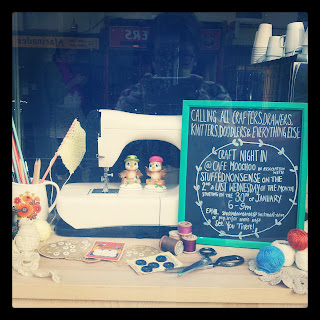 CALLING ALL CRAFTERS, DRAWERS,
KNITTERS, DOODLERS & EVERYTHING ELSE
CRAFT NIGHT IN
@ CAFE MOOCHOO IN ASSOCIATION WITH
STUFFEDNONSENSE ON THE
2nd & LAST WEDNESDAY OF THE MONTH
STARTING ON THE OF JANUARY
6-9PM
EMAIL
SEE YOU THERE!